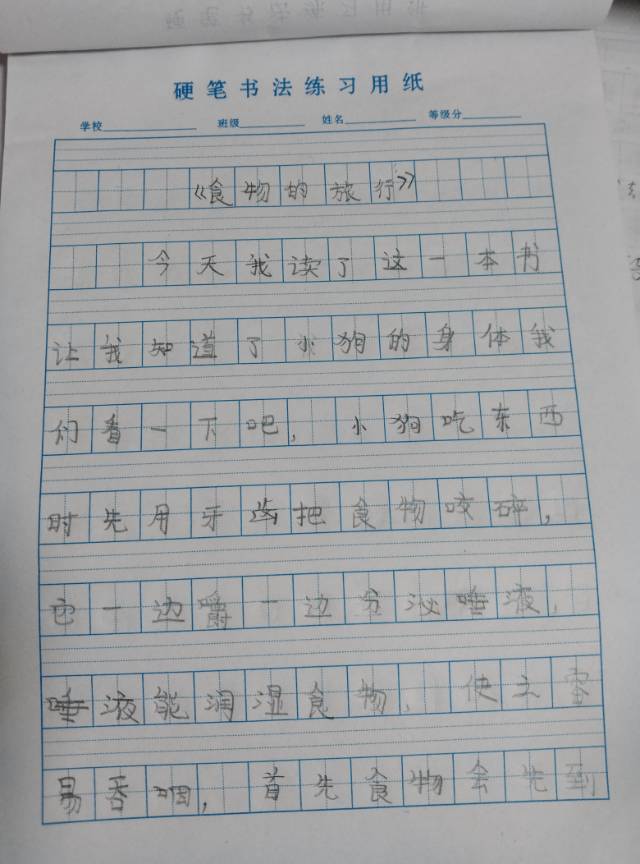 硬笔书法练习用纸
学校 班级 姓名 等级分
《食物的旅行》
今天我读了这一本书
让我知道了小狗的身体我
们看一下吧，小狗吃东西
时先用牙齿把食物咬碎，
它一边嚼一边分泌唾液，
唾液能润湿食物，使之容
易吞咽，首先食物会先到